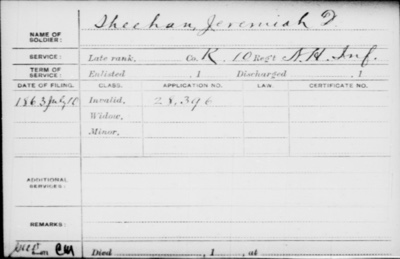 NAME OF SOLDIER: Sheehan, Jeremiah D
SERVICE: Late rank, Co. K, 10 Regt N.H. Inf.
TERM OF SERVICE: Enlisted , 1 Discharged , 1
DATE OF FILING. CLASS. APPLICATION NO. LAW. CERTIFICATE NO.
1863 July 10 Invalid, 28,396
Widow,
Minor,
ADDITIONAL SERVICES:
REMARKS:
Died , 1 , at